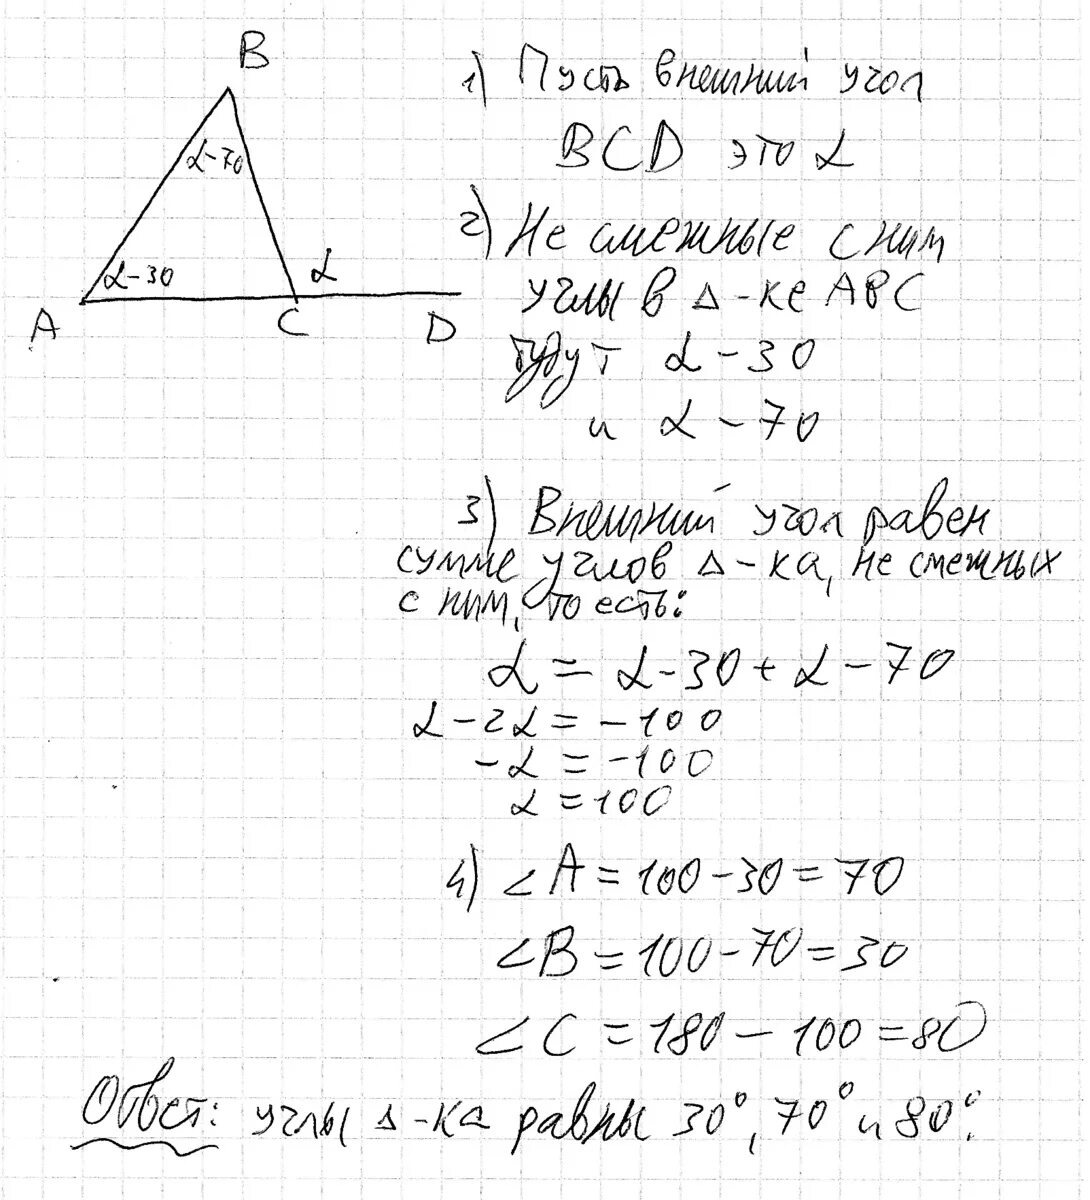 B
α-70
α-30
α
A
C
D
1) Пусть внешний угол
BCD это α
2) Не смежные с ним
углы в Δ-ке ABC
будут α-30
и α-70
3) Внешний угол равен
сумме углов Δ-ка, не смежных
с ним, то есть:
α = α-30 + α-70
α-2α = -100
-α = -100
α = 100
4) ∠A = 100-30 = 70
∠B = 100-70 = 30
∠C = 180 - 100 = 80
Ответ: углы Δ-ка равны 30°, 70° и 80°.